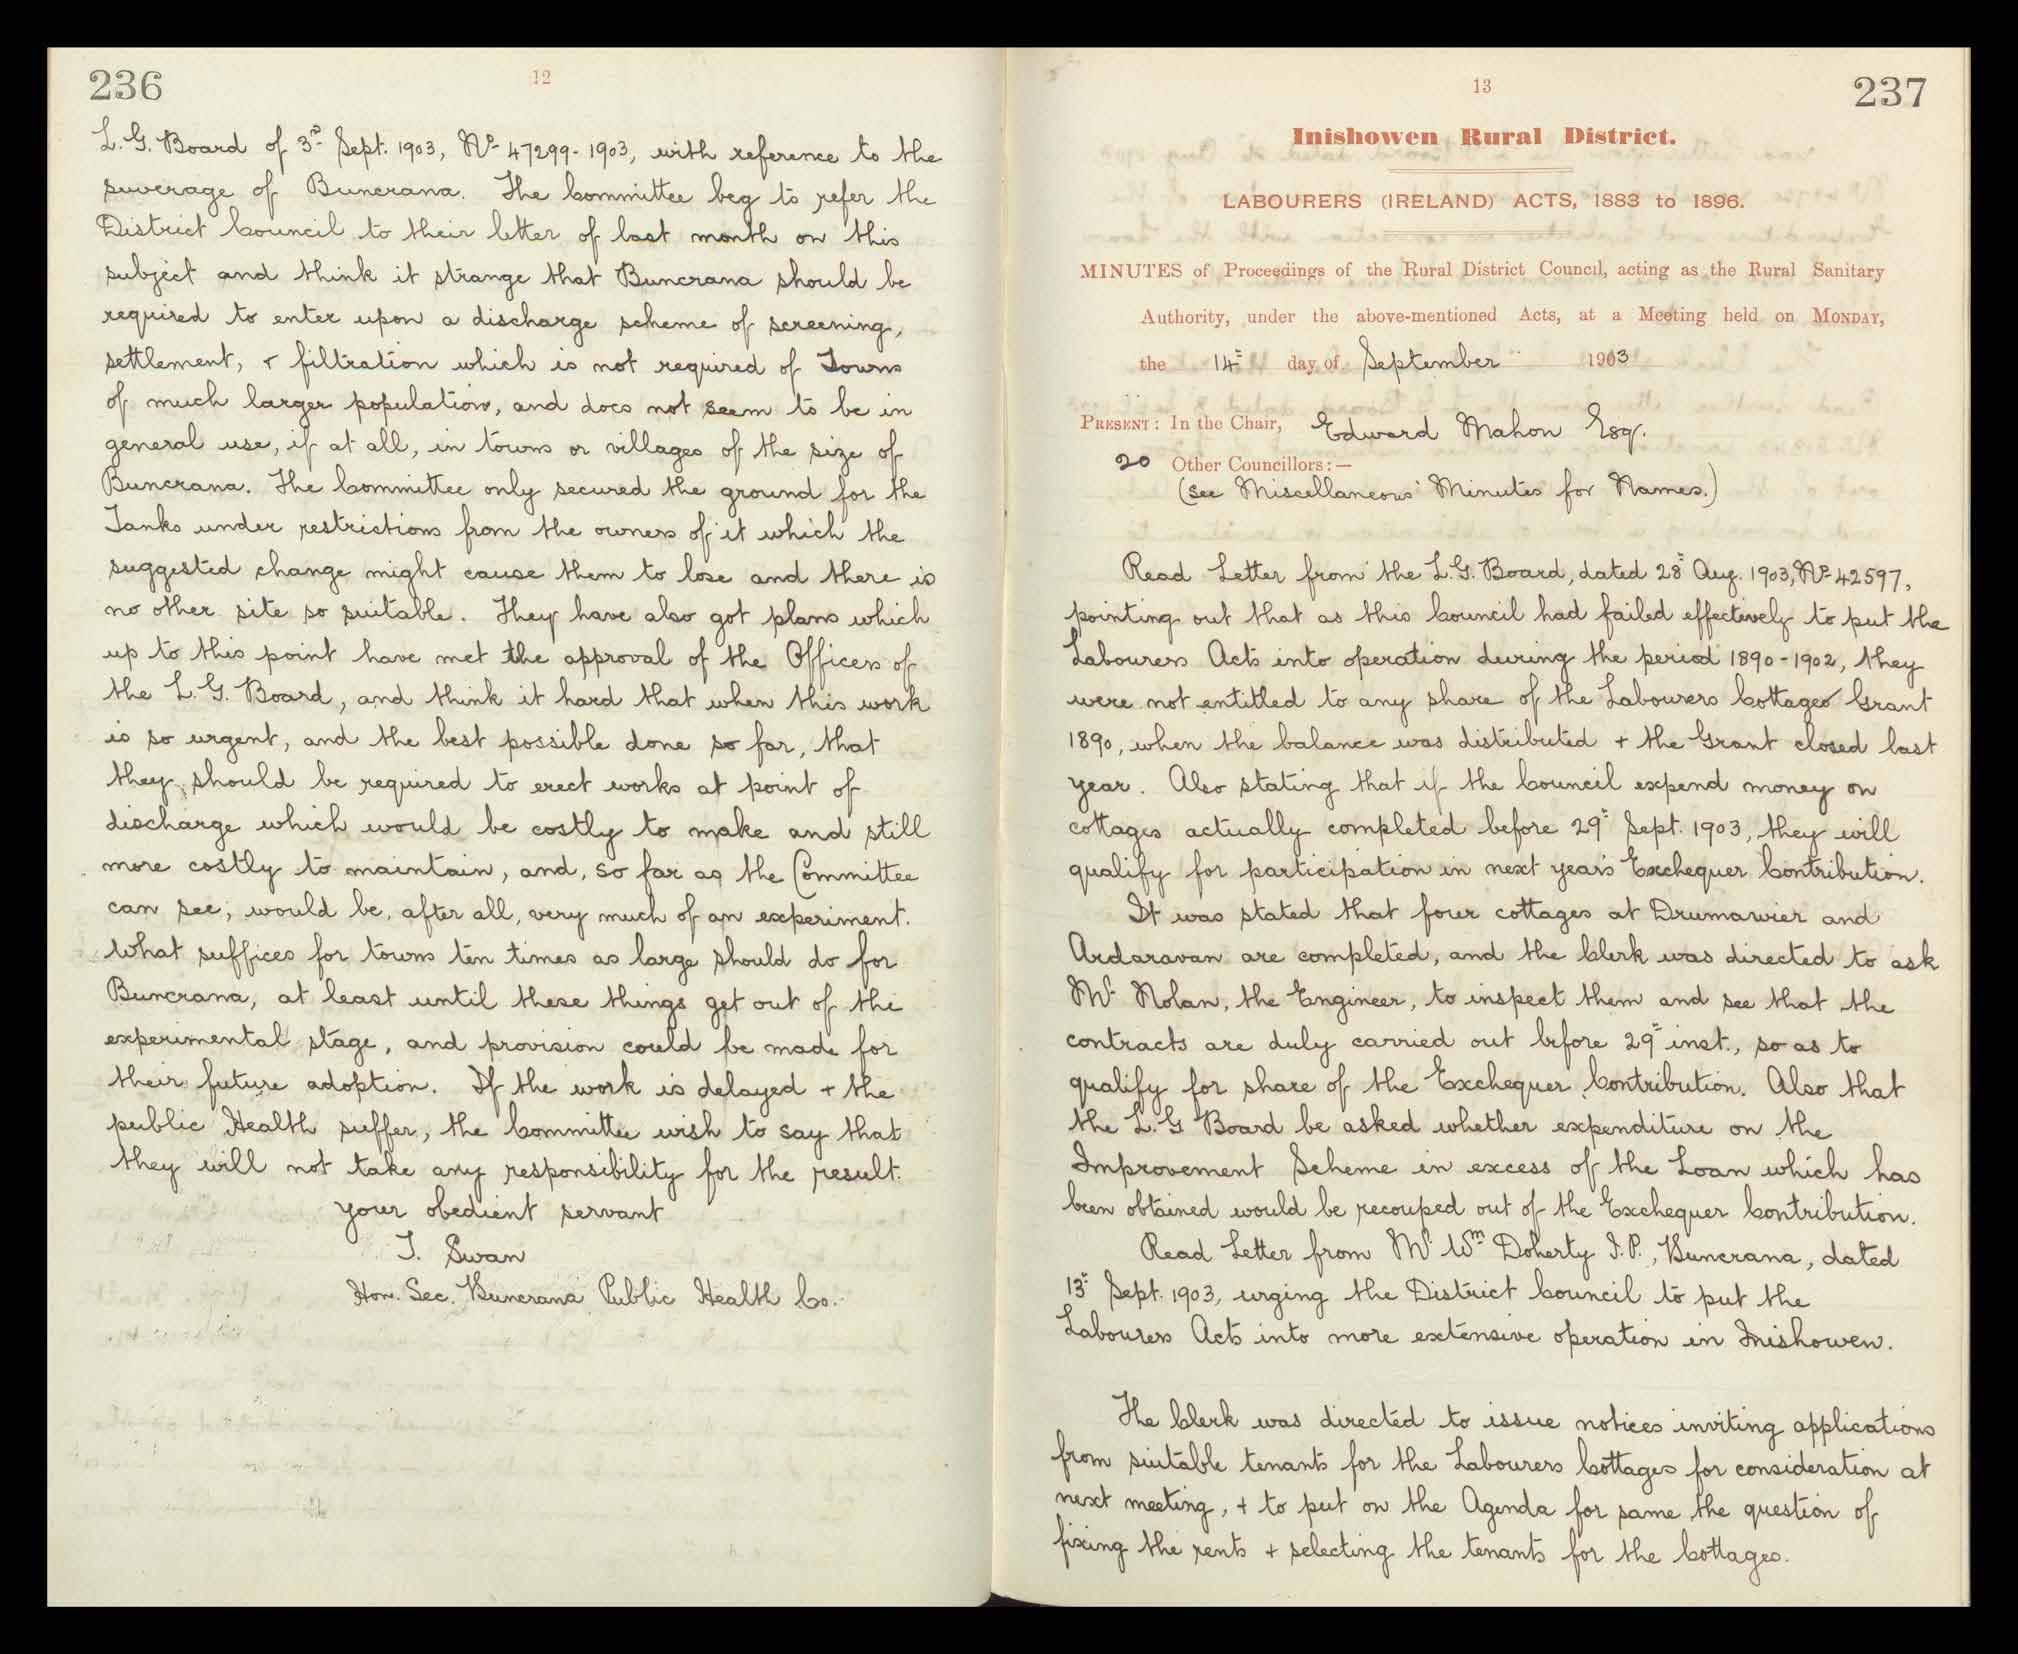 236
12
L. G. Board of 3rd Sept. 1903, No 47299-1903, with reference to the
suverage of Buncrana. The Committee beg to refer the
District Council to their letter of last month on this
subject and think it strange that Buncrana should be
required to enter upon a discharge scheme of screening,
settlement, & filtration which is not required of Towns
of much larger population, and does not seem to be in
general use, if at all, in towns or villages of the size of
Buncrana. The Committee only secured the ground for the
Tanks under restrictions from the owners of it which the
suggested change might cause them to lose and there is
no other site so suitable. They have also got plans which
up to this point have met the approval of the Officers of
the L. G. Board, and think it hard that when this work
is so urgent, and the best possible done so far, that
they should be required to erect works at point of
discharge which would be costly to make and still
more costly to maintain, and, so far as the Committee
can see, would be, after all, very much of an experiment.
What suffices for towns ten times as large should do for
Buncrana, at least until these things get out of the
experimental stage, and provision could be made for
their future adoption. If the work is delayed + the
public Health suffer, the Committee wish to say that
they will not take any responsibility for the result.
your obedient servant
T. Swan
Hon. Sec. Buncrana Public Health Co.
13
237
Inishowen Rural District.
LABOURERS (IRELAND) ACTS, 1883 to 1896.
MINUTES of Proceedings of the Rural District Council, acting as the Rural Sanitary
Authority, under the above-mentioned Acts, at a Meeting held on MONDAY,
the 14th day of September 1903
PRESENT: In the Chair, Edward Mahon Esq.
20 Other Councillors:—
(see Miscellaneous Minutes for Names.)
Read Letter from the L.G. Board, dated 28th Aug. 1903, No 42597,
pointing out that as this Council had failed effectively to put the
Labourers Acts into operation during the period 1890-1902, they
were not entitled to any share of the Labourers Cottages Grant
1890, when the balance was distributed + the Grant closed last
year. Also stating that if the Council expend money on
cottages actually completed before 29th Sept. 1903, they will
qualify for participation in next year's Exchequer Contribution.
It was stated that four cottages at Drumawier and
Ardaravan are completed, and the Clerk was directed to ask
Mr Nolan, the Engineer, to inspect them and see that the
contracts are duly carried out before 29th inst., so as to
qualify for share of the Exchequer Contribution. Also that
the L. G Board be asked whether expenditure on the
Improvement Scheme in excess of the Loan which has
been obtained would be recouped out of the Exchequer Contribution.
Read Letter from Mr Wm Doherty J.P., Buncrana, dated
13th Sept. 1903, urging the District Council to put the
Labourers Acts into more extensive operation in Inishowen.
The Clerk was directed to issue notices inviting applications
from suitable tenants for the Labourers Cottages for consideration at
next meeting, + to put on the Agenda for same the question of
fixing the rents + selecting the tenants for the Cottages.